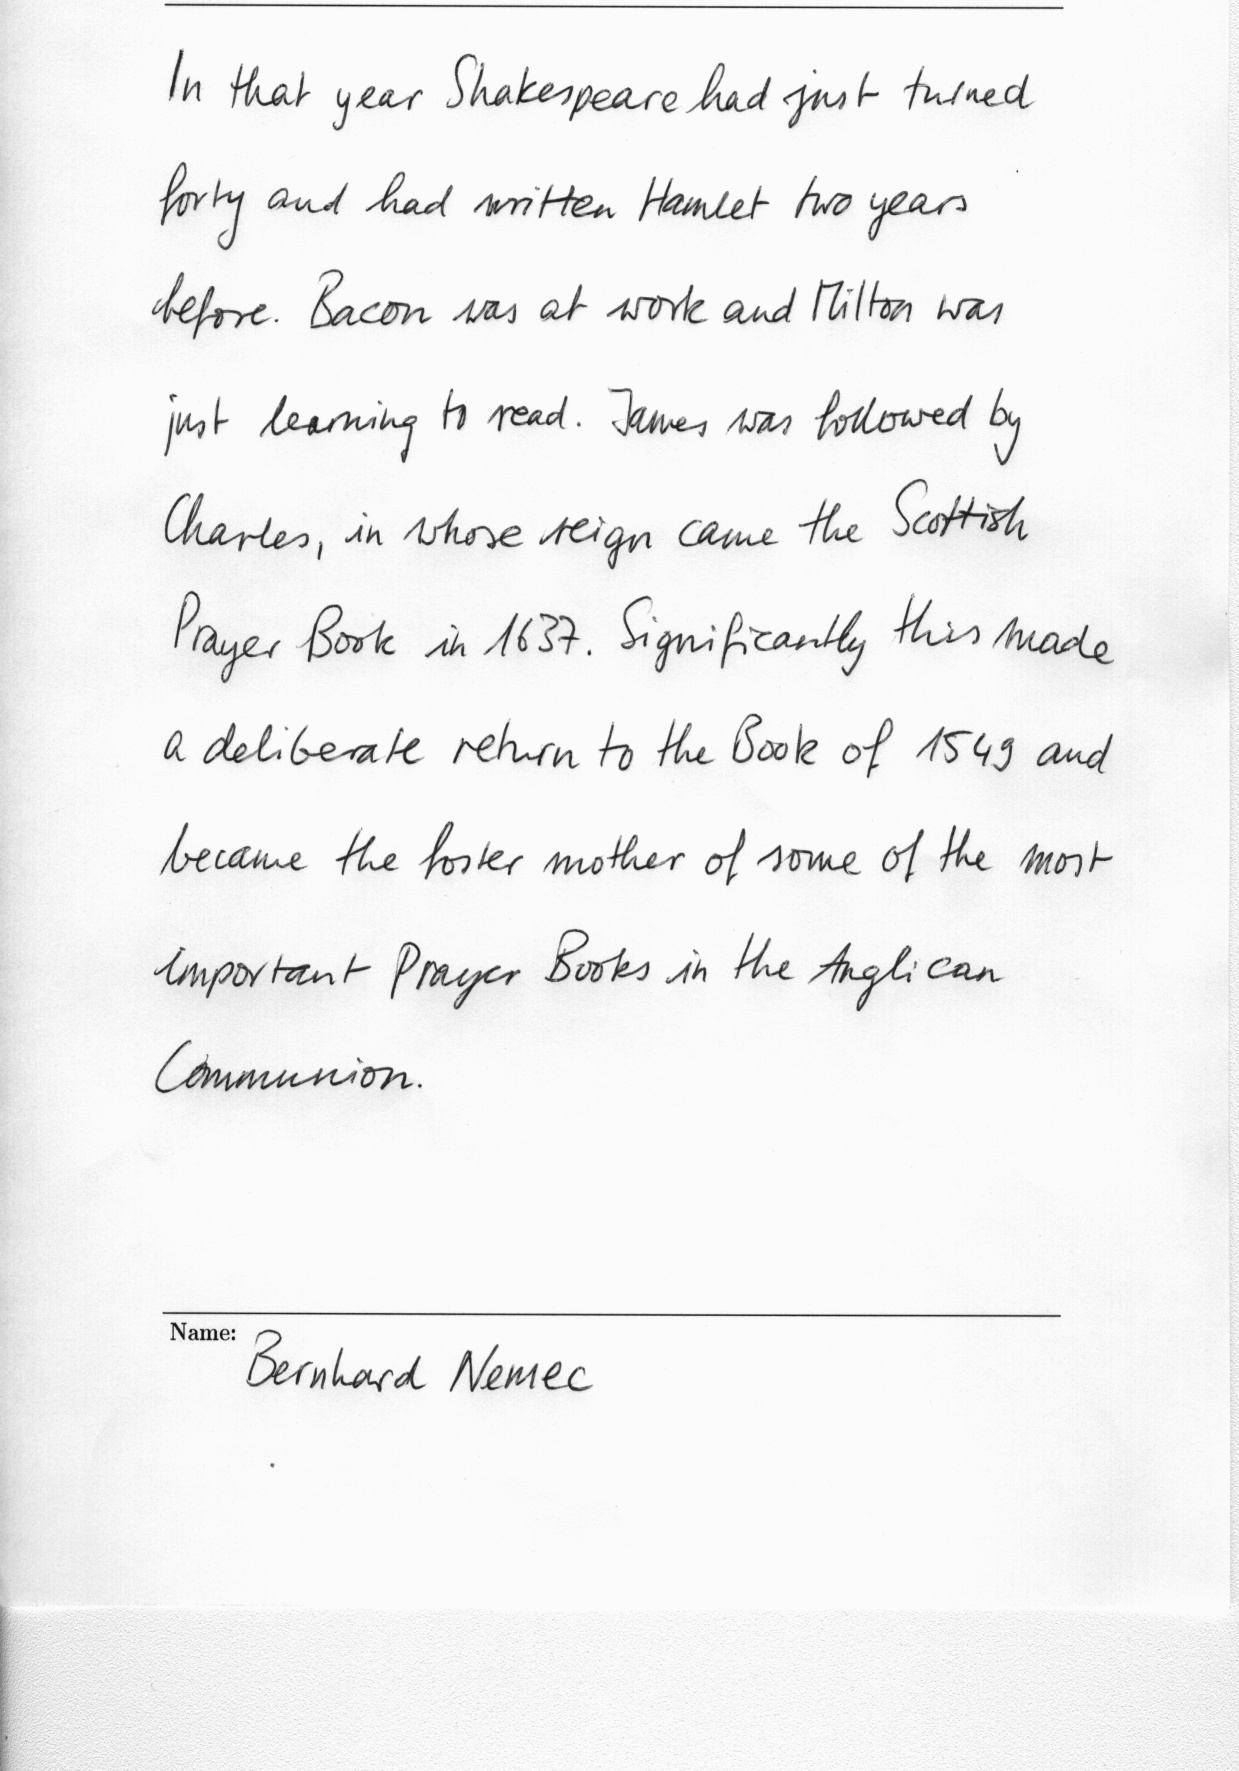 In that year Shakespeare had just turned
forty and had written Hamlet two years
before. Bacon was at work and Milton was
just learning to read. James was followed by
Charles, in whose reign came the Scottish
Prayer Book in 1637. Significantly this made
a deliberate return to the Book of 1549 and
became the foster mother of some of the most
important Prayer Books in the Anglican
Communion.
Name:
Bernhard Nemec